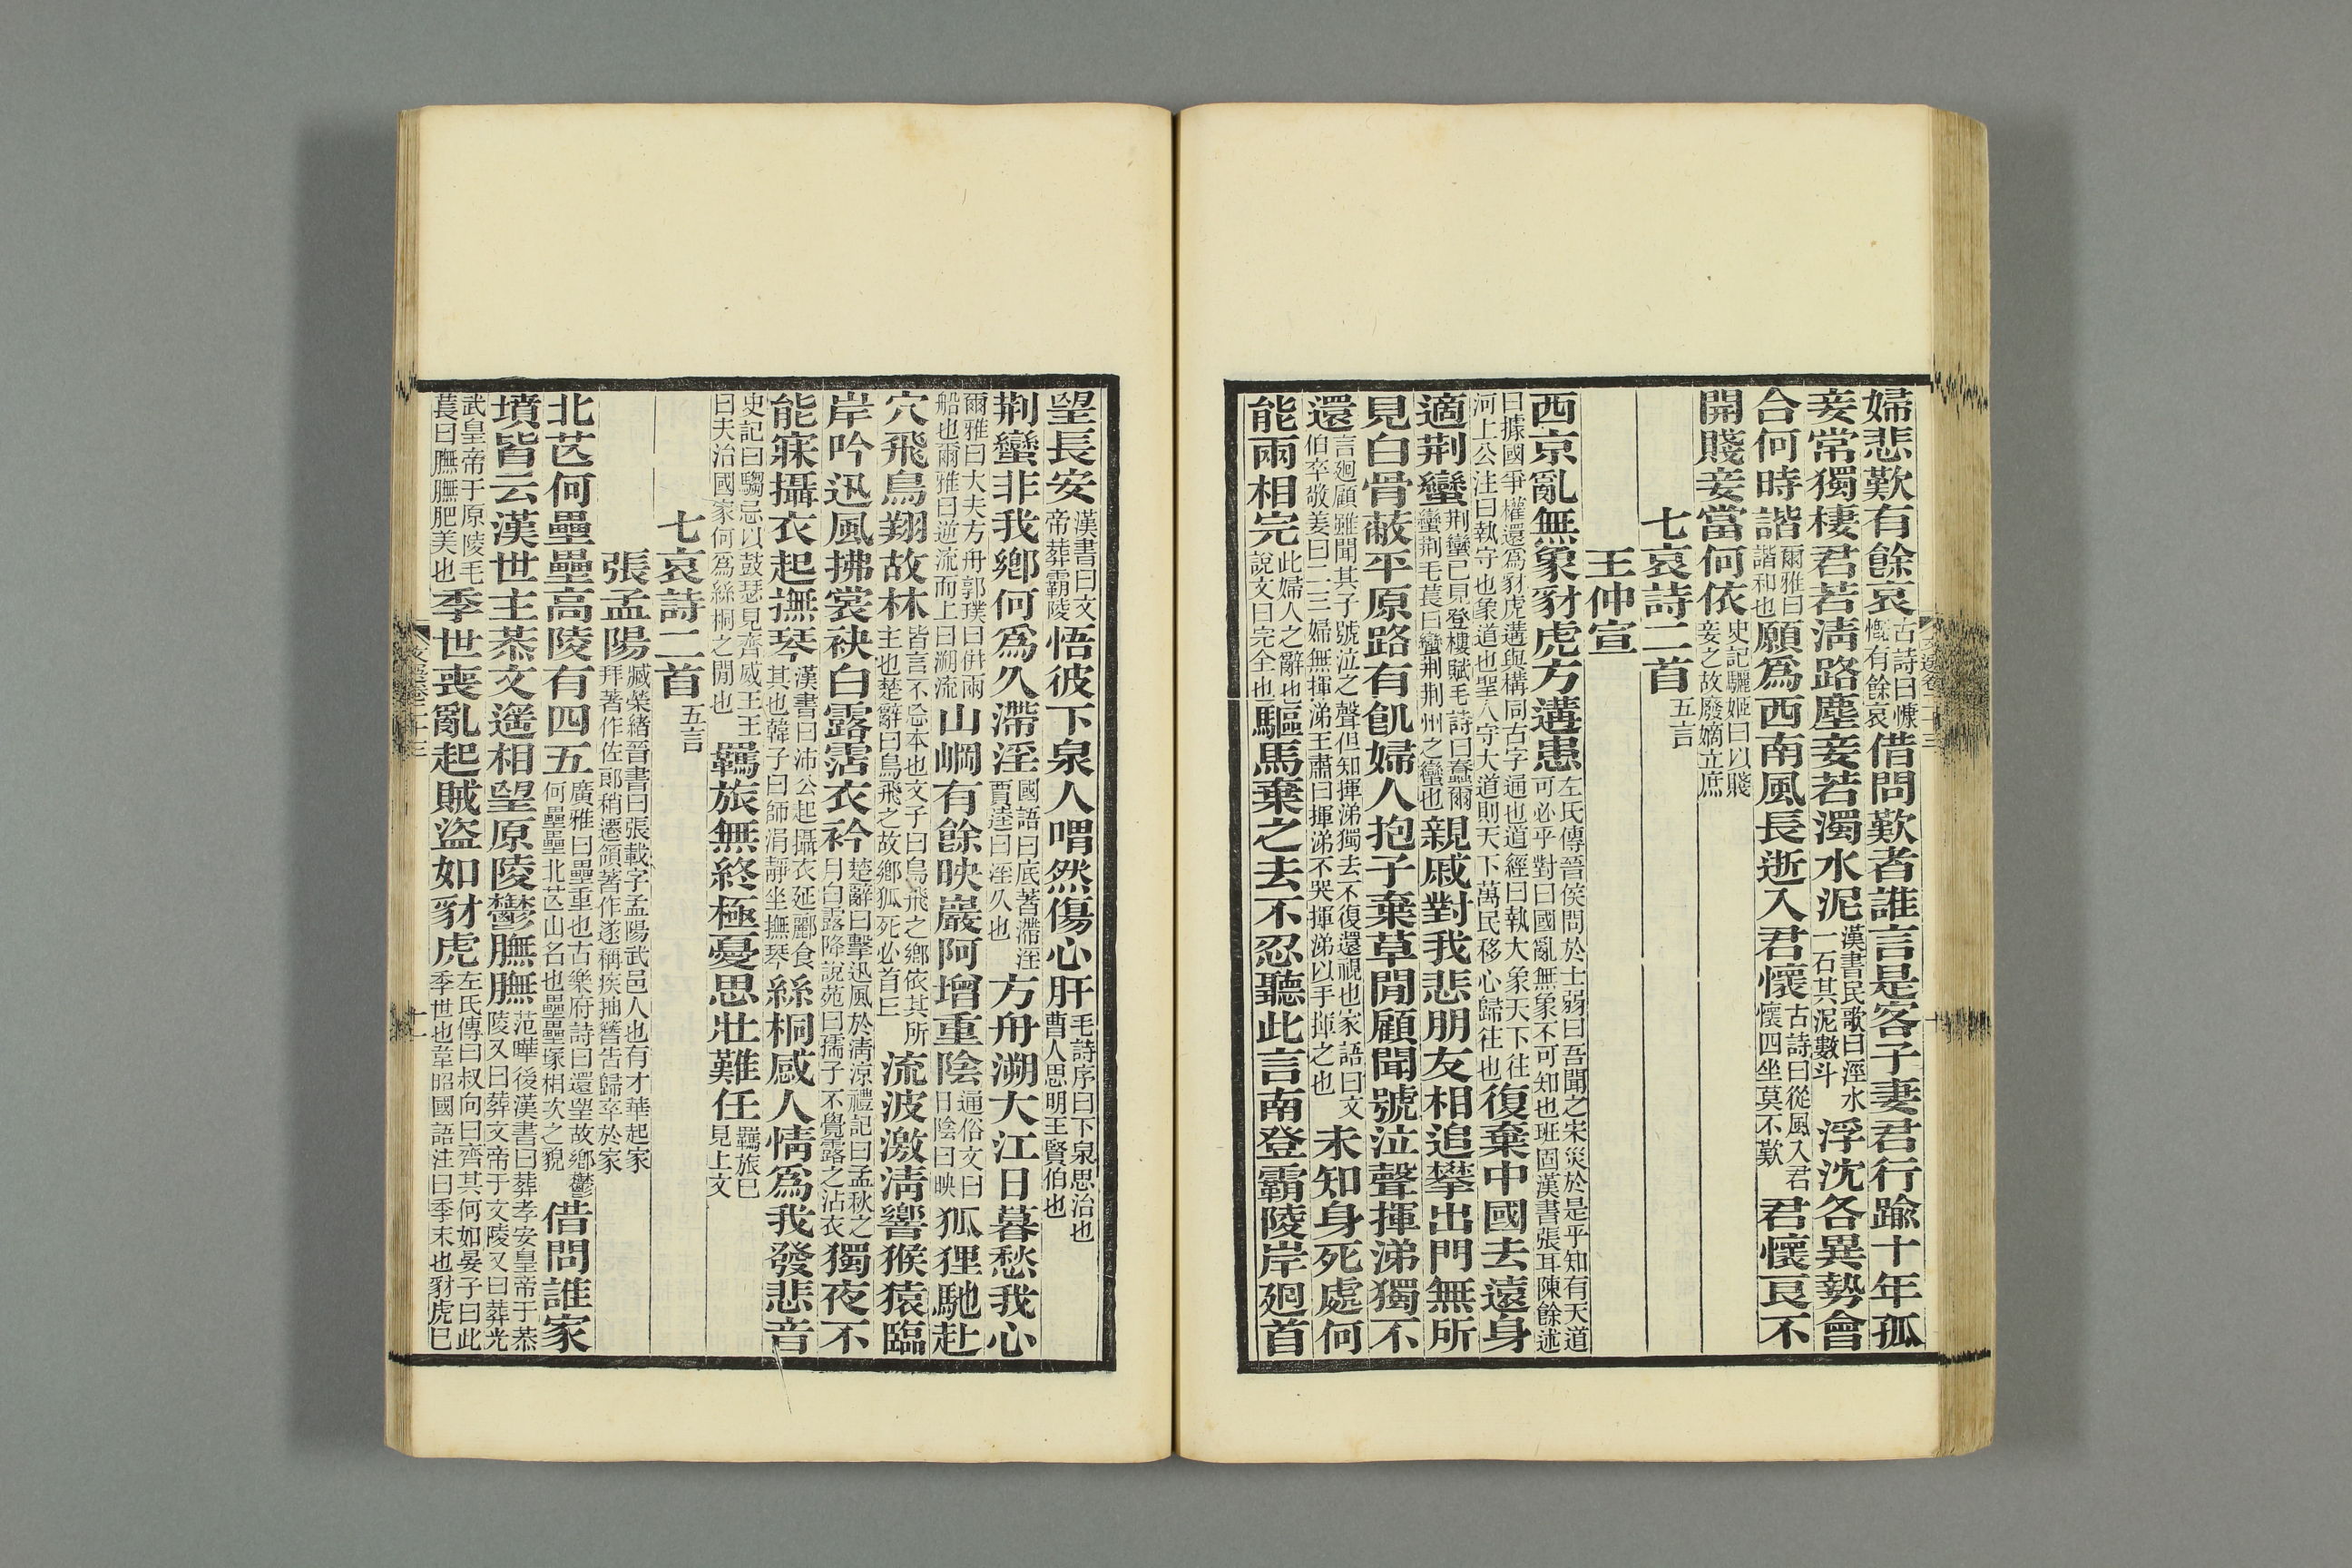 婦悲歎有餘哀古詩曰慷慨有餘哀借問歎者誰言是客子妻君行踰十年孤
妾常獨棲君若淸路塵妾若濁水泥漢書民歌曰涇水一石其泥數斗浮沈各異勢會
合何時諧爾雅曰諧和也願爲西南風長逝入君懷古詩曰從風入君懷四坐莫不歎君懷良不
開賤妾當何依史記驪姬曰以賤妾之故廢嫡立庶
七哀詩二首五言
王仲宣
西京亂無象豺虎方遘患左氏傳晉侯問於士弱曰吾聞之宋災於是乎知有天道可必乎對曰國亂無象不可知也班固漢書張耳陳餘述
曰據國爭權還爲豺虎遘與構同古字通也道經曰執大象天下往河上公注曰執守也象道也聖人守大道則天下萬民移心歸往也復棄中國去遠身
適荆蠻荆蠻已見登樓賦毛詩曰蠢爾蠻荆毛萇曰蠻荆荆州之蠻也親戚對我悲朋友相追攀出門無所
見白骨蔽平原路有飢婦人抱子棄草閒顧聞號泣聲揮涕獨不
還言廻顧雖聞其子號泣之聲但知揮涕獨去不復還視也家語曰文伯卒敬姜曰二三婦無揮涕王肅曰揮涕不哭揮涕以手揮之也未知身死處何
能兩相完此婦人之辭也說文曰完全也驅馬棄之去不忍聽此言南登霸陵岸廻首
望長安漢書曰文帝葬霸陵悟彼下泉人喟然傷心肝毛詩序曰下泉思治也曹人思明王賢伯也
荆蠻非我鄉何爲久滯淫國語曰底著滯淫賈逵曰淫久也方舟溯大江日暮愁我心
爾雅曰大夫方舟郭璞曰併兩船也爾雅曰逆流而上曰溯流山岡有餘映巖阿增重陰通俗文曰日陰曰映狐狸馳赴
穴飛鳥翔故林皆言不忘本也文子曰鳥飛之鄉依其所主也楚辭曰鳥飛之故鄉狐死必首丘流波激淸響猴猿臨
岸吟迅風拂裳袂白露霑衣衿楚辭曰擊迅風於淸涼禮記曰孟秋之月白露降說苑曰孺子不覺露之沾衣獨夜不
能寐攝衣起撫琴漢書曰沛公起攝衣延酈食其也韓子曰師涓靜坐撫琴絲桐感人情爲我發悲音
史記曰騶忌以鼓瑟見齊威王王曰夫治國家何爲絲桐之閒也羈旅無終極憂思壯難任羈旅已見上文
七哀詩二首五言
張孟陽臧榮緖晉書曰張載字孟陽武邑人也有才華起家拜著作佐郎稍遷領著作遂稱疾抽簪告歸卒於家
北芒何壘壘高陵有四五廣雅曰壘重也古樂府詩曰還望故鄉鬱何壘壘北芒山名也壘壘塚相次之貌借問誰家
墳皆云漢世主恭文遙相望原陵鬱膴膴范曄後漢書曰葬孝安皇帝于恭陵又曰葬文帝于文陵又曰葬光
武皇帝于原陵毛萇曰膴膴肥美也季世喪亂起賊盜如豺虎左氏傳曰叔向曰齊其何如晏子曰此季世也韋昭國語注曰季末也豺虎已